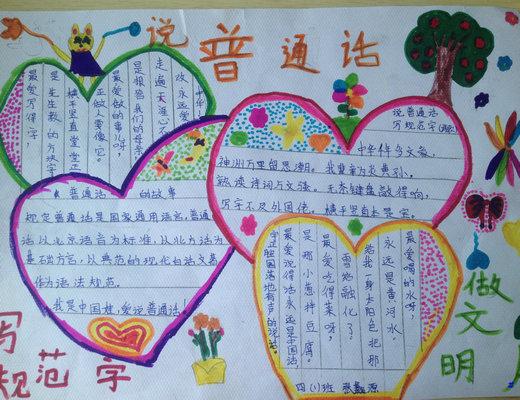 说普通话
中华
改永远爱
走遍天涯心不
是狠爸我们的母亲
最爱做的事儿呀,
正做人要像它。
横平竖直堂堂正
是生生教的方块字
最爱写得字
说普通话
写规范字
中华伟多文豪,
神州万里留思潮。我辈音为炎黄孙,
熟读诗词与文强。无奈键盘敲得响,
写字不及外国佬。横平竖直才是宝。
普通话 的故事
规定普通话是国家通用语言,普通
话以北京语音为标准,以北方话为
基础方言,以典范的现化白话文著
作为语法规范。
我是中国娃,爱说普通话!
最爱喝的水呀,
永远是黄河水。
给我一身太阳色把那
雪姑融化了。
最爱吃得菜呀,
是那小葱拌豆腐。
最爱说得话永远是中国话
字正腔圆落地有声的说话。
四(1)班
做文明
写规范字